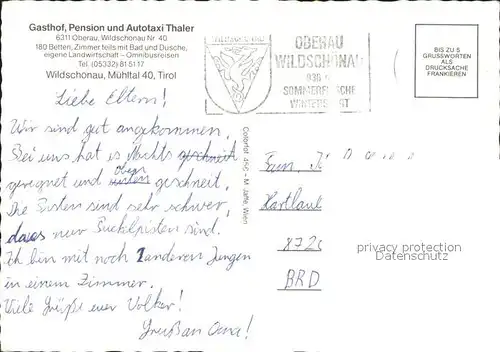 Gasthof, Pension und Autotaxi Thaler
6311 Oberau, Wildschönau Nr. 40
180 Betten, Zimmer teils mit Bad und Dusche,
eigene Landwirtschaft – Omnibusreisen
Tel. (05332) 81 51 17
Wildschönau, Mühltal 40, Tirol
WILDSCHÖNAU
OBERAU
WILDSCHÖNAU
936 m
SOMMERFRISCHE
WINTERSPORT
BIS ZU 5
GRUSSWORTEN
ALS
DRUCKSACHE
FRANKIEREN
Liebe Eltern!
Wir sind gut angekommen,
Bei uns hat es Nachts geschneit
geregnet und unten oben geschneit,
Die Pisten sind sehr schwer,
da es nur Buckelpisten sind.
Ich bin mit noch 7 anderen Jungen
in einem Zimmer.
Viele Grüße euer Volker!
Gruß an Oma!
Colorfot 45C – M. Jaffé, Wien
Fam.
872
BRD
privacy protection
Datenschutz